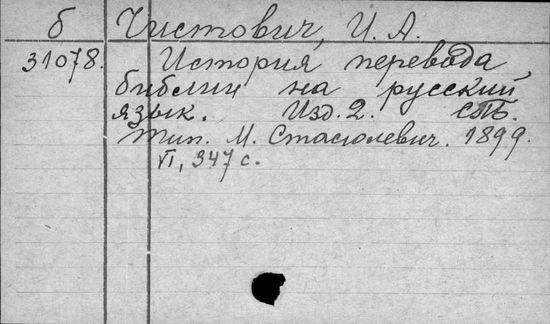 б Чистович, И. А.
31078. История перевода
библии на русский
язык. Изд. 2. СПб.
тип. М. Стасюлевич. 1899.
VI, 347 с.